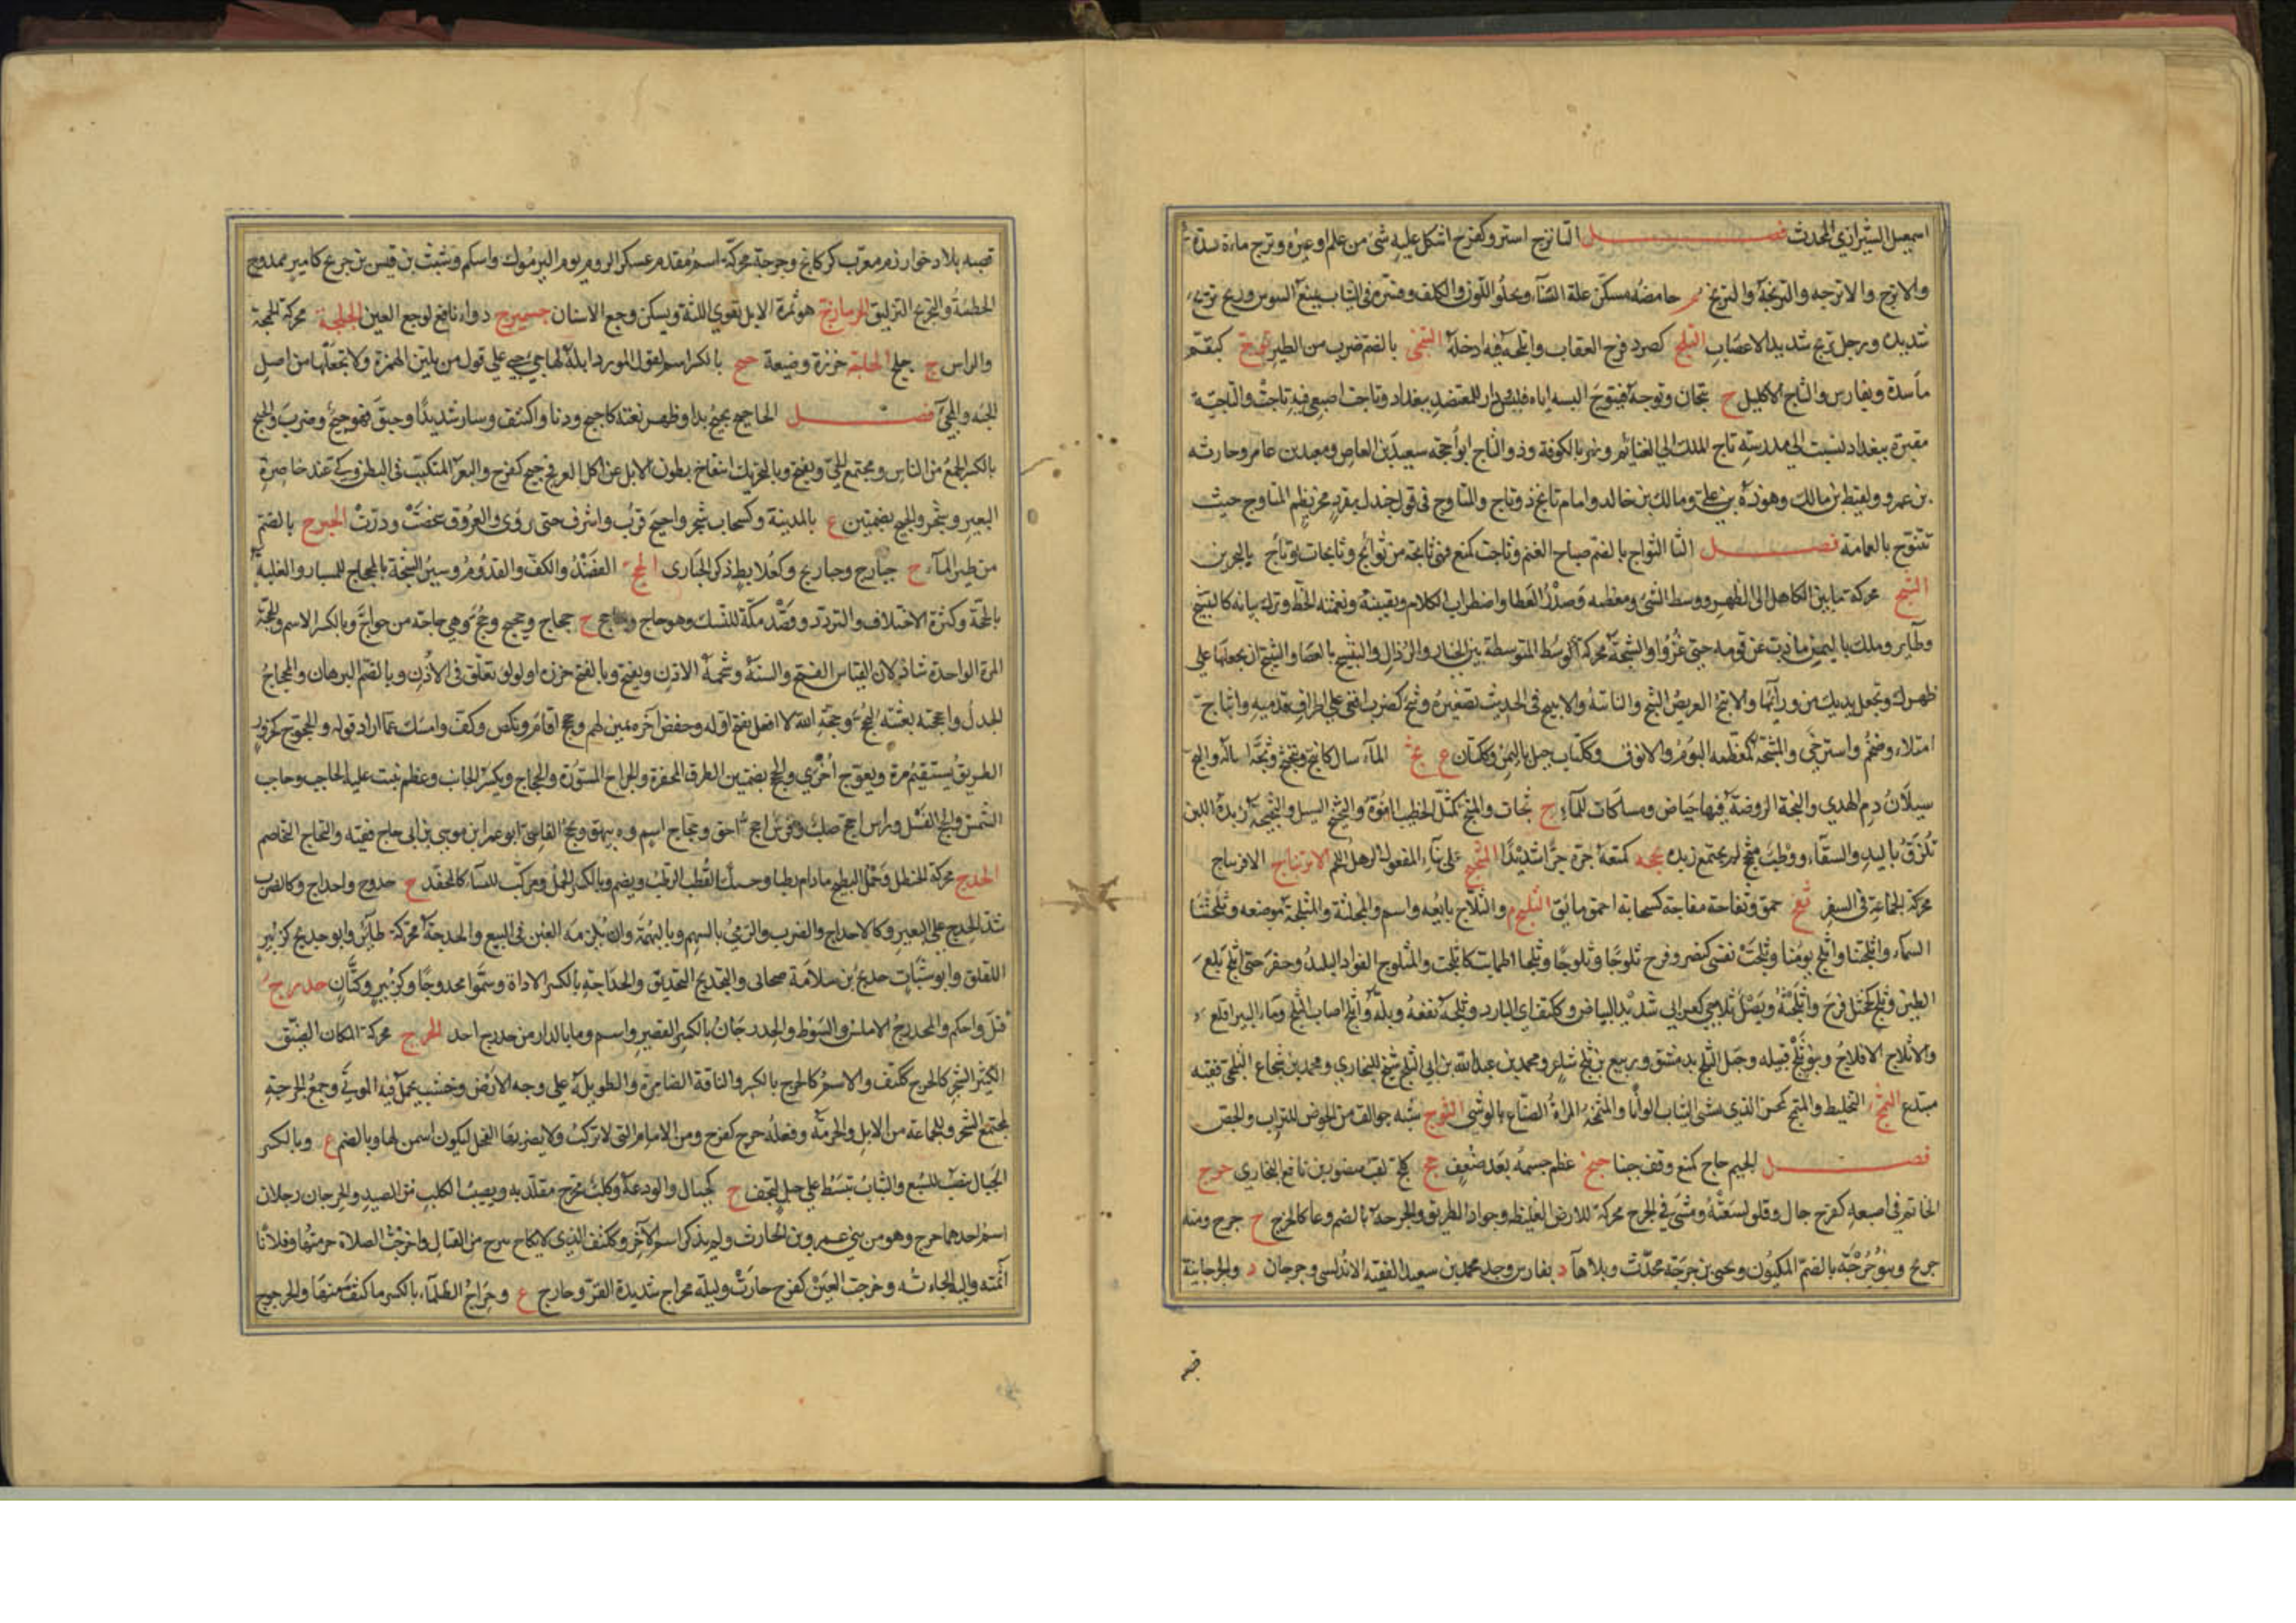 اسمعيل الشيرازي المحدث فصل التا ترج استتر وكفرح اشكل عليه شئ من علم او غيره وترج مأسدة
والاترج والاترجة والترنجة والترنج م حامضه مسكن غلة النساء ويجلو اللون والكلف وقشره في الثياب يمنع السوس وريح تريج
شديدة ورجل تريج شديد الاعصاب التلج كصرد فرخ العقاب واتلجه فيه ادخله التنجي بالضم ضرب من الطير توج كبقم
مأسدة وبفارس والتاج الاكليل ج تيجان وتوجه فتتوج البسه اياه فلبس ودار للمعتضد ببغداد وتاجت اصبعي فيه تاخت والتاجية
مقبرة ببغداد نسبت الى مدرسة تاج الملك ابي الغنائم ونهر بالكوفة وذو التاج ابو احيحة سعيد بن العاص ومعبد بن عامر وحارثة
بن عمرو ولقيط بن مالك وهوذة بن علي ومالك بن خالد وامام تائج ذو تاج والمتاوج في قول جندل بمفرد محر نظم المتاوج حيث
تتتوج بالعمامة فصل الثا الثواج بالضم صياح الغنم وثاجت كمنع فهي ثائجة من ثوائج وثائجات وثاج بالبحرين
الثبج محركة ما بين الكاهل الى الظهر ووسط الشئ ومعظمه وصدر القطا واضطراب الكلام وتفنينه وتعمية الخط وترك بيانه كالتثبيج
وطائر وملك باليمن ما ذب عن قومه حتى غزوا والثبجة محركة الوسط المتوسطة بين الخيار والرذال والتثبيج بالعصا والتثبج ان تجعلها على
ظهرك وتجعل يديك من ورائها والاثبج العريض الثبج والناتئه والاثيبج في الحديث تصغيره وثبج كضرب اقعى على اطراف قدميه واثباج
امتلاء وضخم واسترخى والمثبجة كمعظمة البوم والانوق وككتاب جبل باليمن وككتان ع ثج الماء سال كانثج وتثجثج وثجه اساله والثج
سيلان دم الهدي والثجة الروضة فيها حياض ومساكات للماء ج ثجات والمثج كمثل الخطيب المفوه والثجيج السيل والثجيجة زبدة اللبن
تلزق باليد والسقاء ووطب مثج لم يجتمع زبده ثحجه كمنعه جره جرا شديدا المثجج على بناء المفعول الرهل اللحم الاثرنباج الافرنباج
محركة الجماعة في السفر ثفج حمق وثفاجة مفاجة كسحابة احمق مائق الثلج م والثلاج بايعه واسم والمثلجة موضعه وثلجتنا
السماء واثلجتنا واثلج يومنا وثلجت نفسي كنصر وفرح ثلوجا وثلجا اطمأنت كاثلجت والمثلوج الفواد البليد وحفر حتى اثلج بلغ
الطين وثلج كخجل فرح واثلجته ونصل ثلاجي كغرابي شديد البياض وككتف اي البارد وثلجه نقعه وبله واثلج اصاب الثلج وماء البير اقلع
والاثلاج الافلاج وبنو ثلج قبيلة وجبل الثلج بدمشق وربيع بن ثلج شاعر ومحمد بن عبدالله بن ابي الثلج شيخ للبخاري ومحمد بن شجاع الثلجي فقيه
مبتدع الثمج التخليط والمثمج كمحسن الذي يشى الثياب الوانا والمثمجة المراة الصناع بالوشي الثوج شبه جوالق من الخوص للتراب والجص
فصل الجيم جاج كمنع وقف جبنا جبج عظم جسمه بعد ضعف جج كلة لقب منصور بن نافع البخاري جرج
الخاتم في اصبعه كفرح جال وقلق لسعته ومشى في الجرج محركة للارض الغليظة وجواد الطريق والجرجة بالضم وعا كالخرج ج جرج ومنه
جريج وبنو جرجة بالضم المكيون ويحيى بن جرجة محدث وبلا هاء د بفارس وجد محمد بن سعيد الفقيه الاندلسي وجرجان د والجرجانية
قصبه
قصبه بلاد خوارزم معرب كركانج وجرجة محركة اسم مقدم عسكر الروم يوم اليرموك واسلم وشبث بن قيس بن جريج كامير ممدوح
الحطيئة والتجريج التزليق الجزمازج هو ثمرة الاثل يقوي اللثة ويسكن وجع الاسنان جسميرج دواء نافع لوجع العين الجلجة محركة الجمجمة
والراس ج جلج الجاجة خرزة وضيعة جيج بالكسر اسم لقول المورد ابله لها جئ جئ على قول من يلين الهمزة ولا يجعلها من اصل
الجئة والجئ فصل الحا حبج يحبج بدا وظهر بغتة كاحبج ودنا واكتنف وسار شديدا وحبق فهو حبج وضرب والحبج
بالكسر الجمع من الناس ومجتمع الحي ويفتح وبالتحريك انتفاخ بطون الابل عن اكل العرفج حبج كفرح والبعر المتكبب في البطن وكية عند خاصرة
البعير وشجر والحبج بضمتين ع بالمدينة وكسحاب شجر واحبج قرب واشرف حتى روى والعروق شخصت ودرت الحبرج بالضم
من طير الماء ج حبارج وحباريج وكعلابط ذكر الحبارى الحج القصد والكف والقدوم وسبر الشجة بالمحجاج للمسبار والغلبة
بالحجة وكثرة الاختلاف والتردد وقصد مكة للنسك وهو حاج وحاجج ج حجاج وحجيج وحج وهي حاجة من حواج وبالكسر الاسم والحجة
المرة الواحدة شاذ لان القياس الفتح والسنة وشحمة الاذن ويفتح وبالفتح خرزة او لولوة تعلق في الاذن وبالضم البرهان والمحجاج
الجدل واحججته بعثته ليحج وحجة الله لا افعل بفتح اوله وخفض آخره يمين لهم وحجحج اقام ونكص وكف وامسك عما اراد قوله والحجوج كحزور
الطريق يستقيم مرة ويعوج اخرى والحجج بضمتين الطرق المحفرة والجراح المسبورة والحجاج ويكسر الجانب وعظم ينبت عليه الحاجب وحاجب
الشمس والحجحج الفسل وراس احج صلب وفرس احج احق وحجاج اسم و ة ببيهق وحج القاسي ابو عمران موسى بن ابي حاج فقيه والتحاج التخاصم
الحدج محركة الحنظل وحمل البطيخ مادام رطبا وحسك القطب الرطب ويضم وبالكسر الحمل ومركب للنساء كالمحفة ج حدوج واحداج وكالضرب
شد الحدج على البعير وكالاحداج والضرب والرمي بالسهم وبالتهمة وان تلزمه الغبن في البيع والحدجة محركة طائر وابو حديج كزبير
اللقلق وابو شباث حديج بن سلامة صحابي والتحديج التحديق والحداجة بالكسر الاداة وسموا محدوجا وكزبير وكتان حدرج
فتل واحكم والمحدرج الاملس والسوط والحدرجان بالكسر القصير واسم وما بالدار من حدرج احد الحرج محركة المكان الضيق
الكثير الشجر كالحرج ككتف والاثم كالحرج بالكسر والناقة الضامرة والطويلة على وجه الارض وخشب يحمل فيه الموتى وجمع الحرجة
لمجتمع الشجر وللجماعة من الابل والحرمة وفعله حرج كفرح ومن الابل التي لا تركب ولا يضربها الفحل ليكون اسمن لها وبالضم ع وبالكسر
الحبال تنصب للسبع والثياب تبسط على حبل لتجف ج كجبال والودعة وكلب محرج مقلد به ونصيب الكلب من الصيد والحرجان رجلان
اسم احدهما حرج وهو من بني عمرو بن الحارث ولم يذكر اسم الآخر وككتف الذي لا يكاد يبرح من القتال واحرجت الصلاة حرمتها وفلانا
اثمته واليه الجاءته وحرجت العين كفرح حارت وليلة محراج شديدة القر وحارج ع وحراج الظلماء بالكسر ما كثف منها والحرجوج